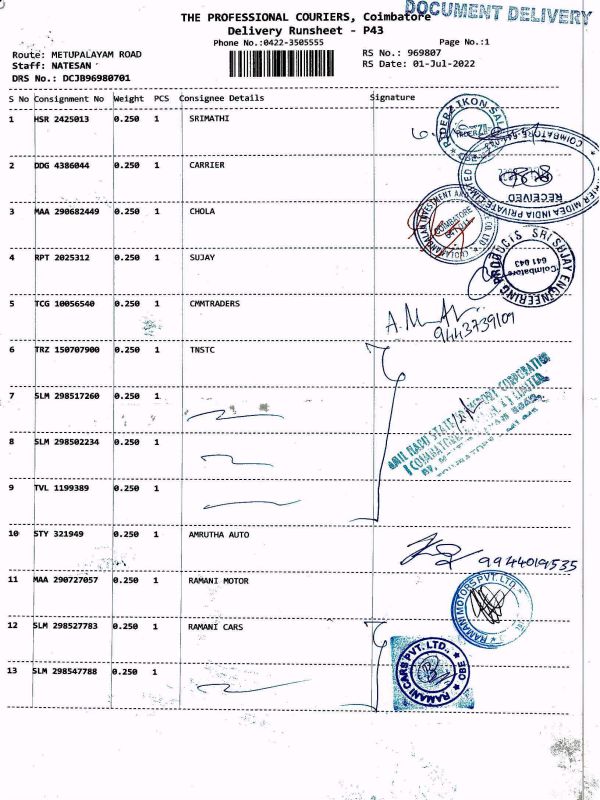 DOCUMENT DELIVERY
THE PROFESSIONAL COURIERS, Coimbatore
Delivery Runsheet - P43
Phone No.:0422-3505555
Page No.:1
Route: METUPALAYAM ROAD
RS No.: 969807
Staff: NATESAN
RS Date: 01-Jul-2022
DRS No.: DCJB96980701
S No Consignment No Weight PCS Consignee Details Signature
1 HSR 2425013 0.250 1 SRIMATHI
RIDERZ IKON
2 DDG 4386044 0.250 1 CARRIER
MIDEA INDIA PRIVATE LIMITED
RECEIVED
3 MAA 290682449 0.250 1 CHOLA
INVESTMENT
COIMBATORE
4 RPT 2025312 0.250 1 SUJAY
SRI SUJAY ENGINEERING PRODUCTS
Coimbatore
641 043
5 TCG 10056540 0.250 1 CMMTRADERS
9443739109
6 TRZ 150707900 0.250 1 TNSTC
7 SLM 298517260 0.250 1
8 SLM 298502234 0.250 1
9 TVL 1199389 0.250 1
10 STY 321949 0.250 1 AMRUTHA AUTO
9944019535
11 MAA 290727057 0.250 1 RAMANI MOTOR
RAMANI MOTORS PVT. LTD.
12 SLM 298527783 0.250 1 RAMANI CARS
13 SLM 298547788 0.250 1
RAMANI CARS PVT. LTD. EBO